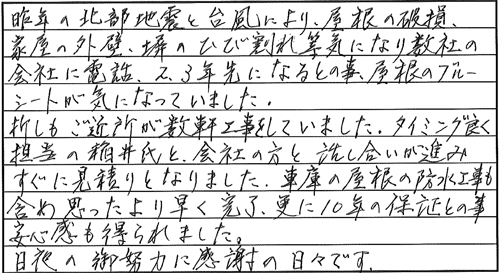 昨年の北部地震と台風により、屋根の破損、
家屋の外壁、塀のひび割れ等気になり数社の
会社に電話、2、3年先になるとの事、屋根のブルー
シートが気になっていました。
折しもご近所が数軒工事をしていました。タイミング良く
担当の稲井氏と、会社の方と話し合いが進み
すぐに見積りとなりました。車庫の屋根の防水工事も
含め思ったより早く完了、更に10年の保証との事
安心感も得られました。
日夜の御努力に感謝の日々です。